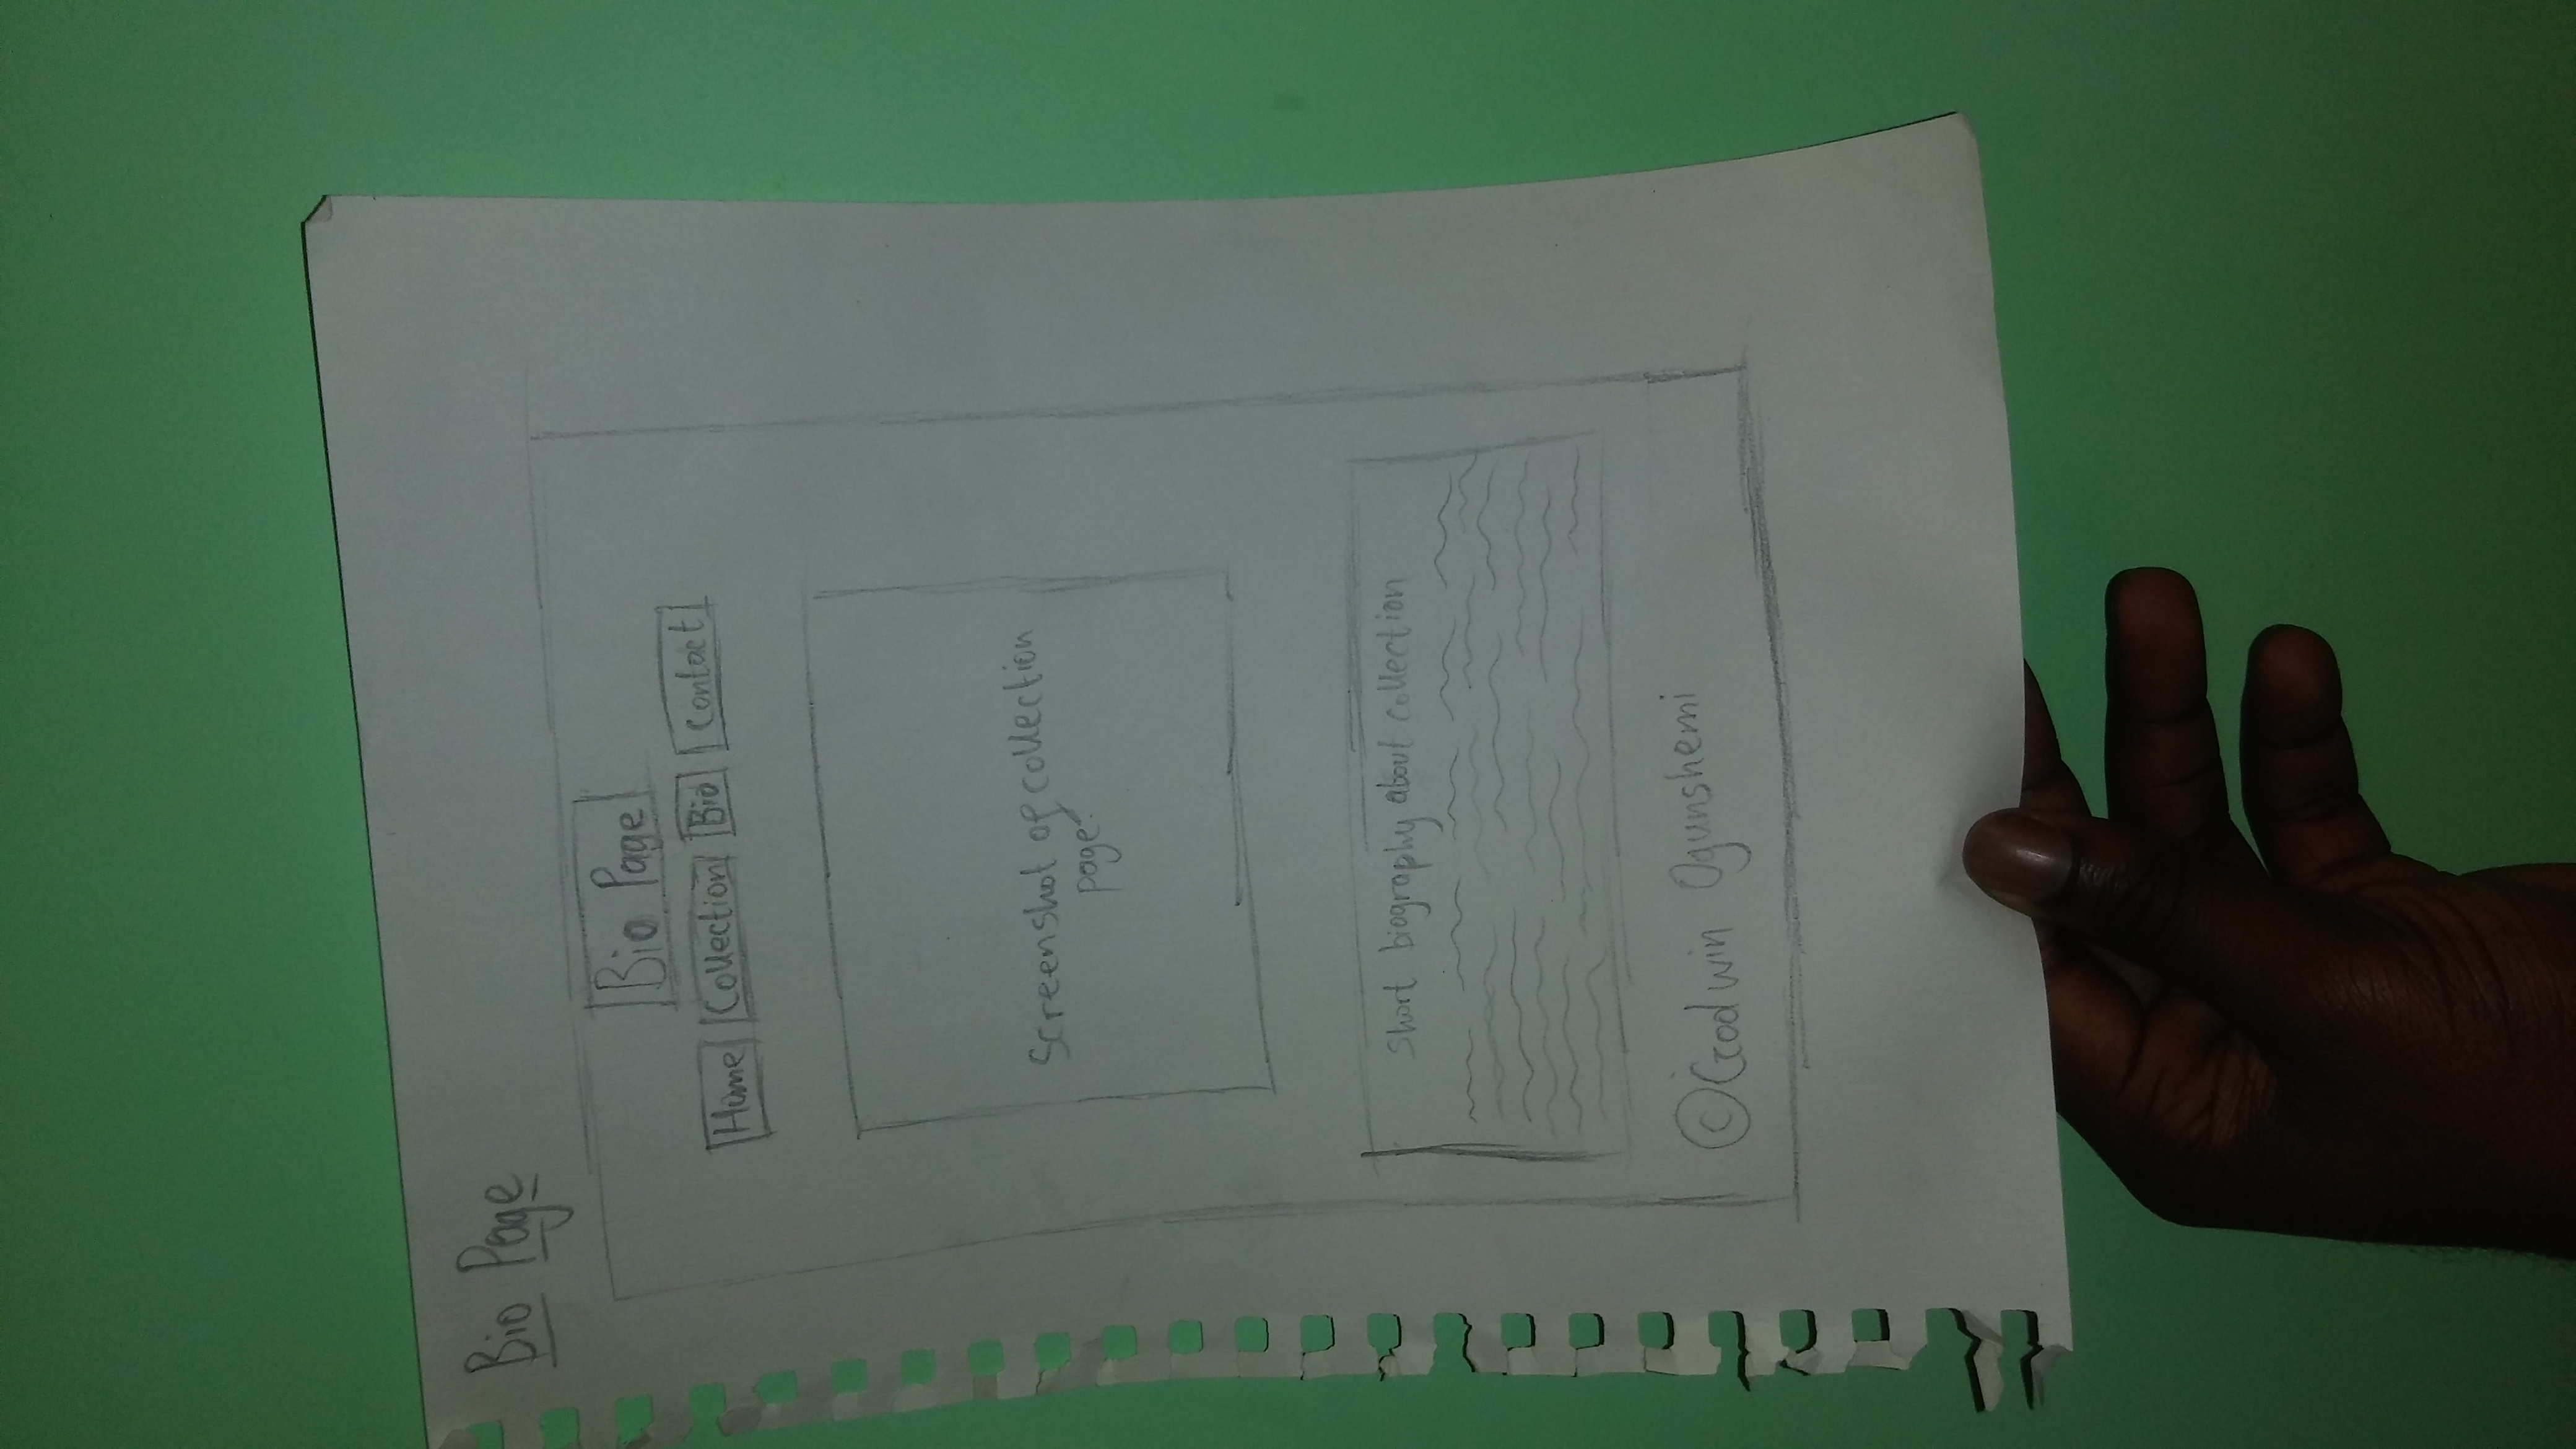 Bio Page
Bio Page
Home Collection Bio Contact
Screenshot of collection
page.
Short biography about collection
© Godwin Ogunshemi